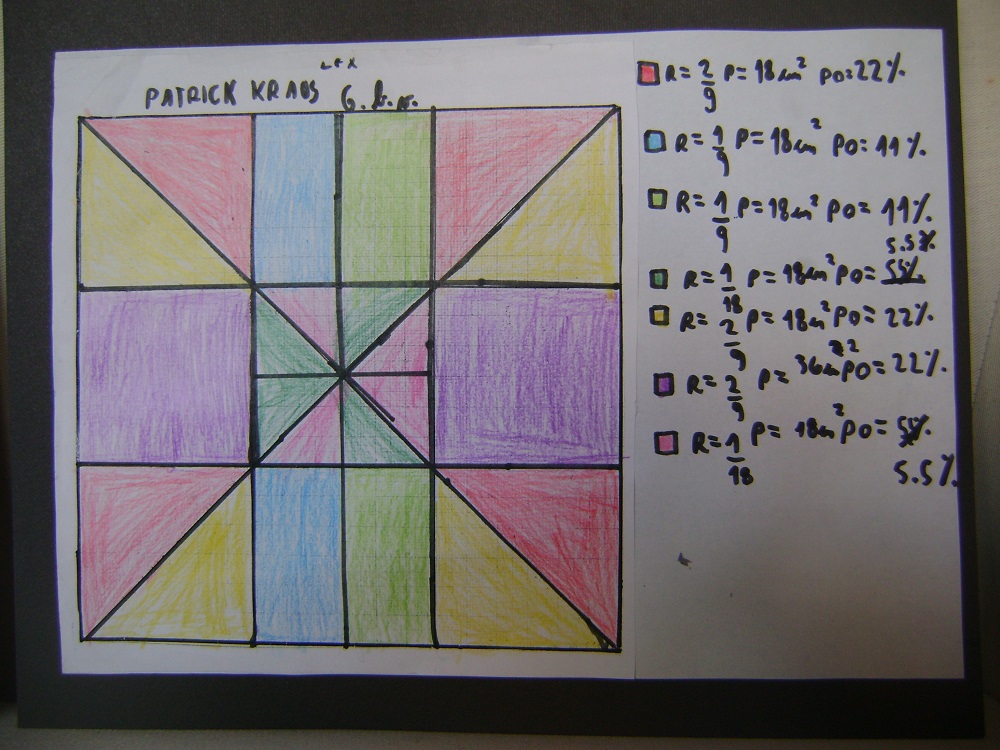 PATRICK KRAUS 6.b.r.
R=2/9 P=18cm² PO=22%
R=1/9 P=18cm² PO=11%
R=1/9 P=18cm² PO=11%
5.5%
R=1/18 P=18cm² PO=
R=2/9 P=18cm² PO=22%
R=2/9 P=36cm² PO=22%
R=1/18 P=18cm² PO=
5.5%